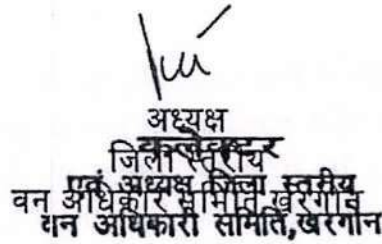 अध्यक्ष
कलेक्टर
जिला स्तरीय
एवं अध्यक्ष जिला स्तरीय
वन अधिकार समिति खरगोन
वन अधिकारी समिति, खरगोन